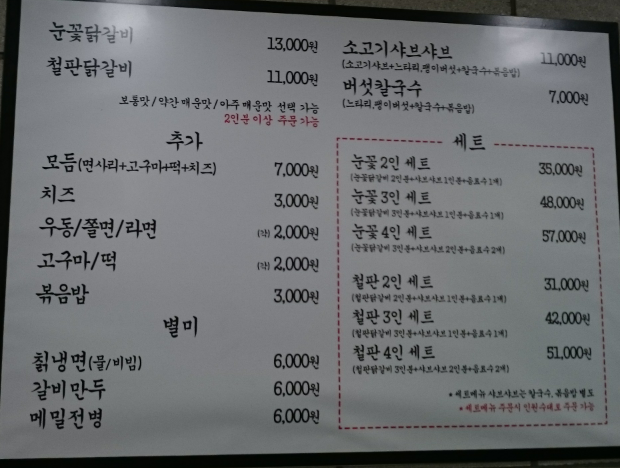 눈꽃닭갈비 13,000원
철판닭갈비 11,000원
보통맛/약간 매운맛/아주 매운맛 선택 가능
2인분 이상 주문 가능
추가
모듬(면사리+고구마+떡+치즈) 7,000원
치즈 3,000원
우동/쫄면/라면 (각) 2,000원
고구마/떡 (각) 2,000원
볶음밥 3,000원
별미
칡냉면(물/비빔) 6,000원
갈비만두 6,000원
메밀전병 6,000원
소고기샤브샤브 11,000원
(소고기샤브+느타리,팽이버섯+칼국수+볶음밥)
버섯칼국수 7,000원
(느타리,팽이버섯+칼국수+볶음밥)
세트
눈꽃 2인 세트 35,000원
(눈꽃닭갈비 2인분+샤브샤브 1인분+음료수 1개)
눈꽃 3인 세트 48,000원
(눈꽃닭갈비 3인분+샤브샤브 1인분+음료수 1개)
눈꽃 4인 세트 57,000원
(눈꽃닭갈비 3인분+샤브샤브 2인분+음료수 2개)
철판 2인 세트 31,000원
(철판닭갈비 2인분+샤브샤브 1인분+음료수 1개)
철판 3인 세트 42,000원
(철판닭갈비 3인분+샤브샤브 1인분+음료수 1개)
철판 4인 세트 51,000원
(철판닭갈비 3인분+샤브샤브 2인분+음료수 2개)
* 세트메뉴 샤브샤브는 칼국수, 볶음밥 별도
* 세트메뉴 주문시 인원수대로 주문 가능